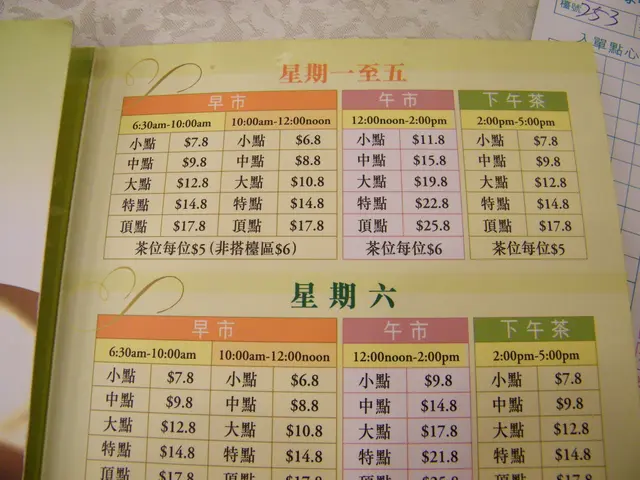 檯號 253
入單點心
星期一至五
早市 午市 下午茶
6:30am-10:00am 10:00am-12:00noon 12:00noon-2:00pm 2:00pm-5:00pm
小點 $7.8 小點 $6.8 小點 $11.8 小點 $7.8
中點 $9.8 中點 $8.8 中點 $15.8 中點 $9.8
大點 $12.8 大點 $10.8 大點 $19.8 大點 $12.8
特點 $14.8 特點 $14.8 特點 $22.8 特點 $14.8
頂點 $17.8 頂點 $17.8 頂點 $25.8 頂點 $17.8
茶位每位$5(非搭檯區$6) 茶位每位$6 茶位每位$5
星期六
早市 午市 下午茶
6:30am-10:00am 10:00am-12:00noon 12:00noon-2:00pm 2:00pm-5:00pm
小點 $7.8 小點 $6.8 小點 $9.8 小點 $7.8
中點 $9.8 中點 $8.8 中點 $14.8 中點 $9.8
大點 $12.8 大點 $10.8 大點 $17.8 大點 $12.8
特點 $14.8 特點 $14.8 特點 $21.8 特點 $14.8
頂點 $17.8 頂點 $17.8 頂點 頂點 $17.8